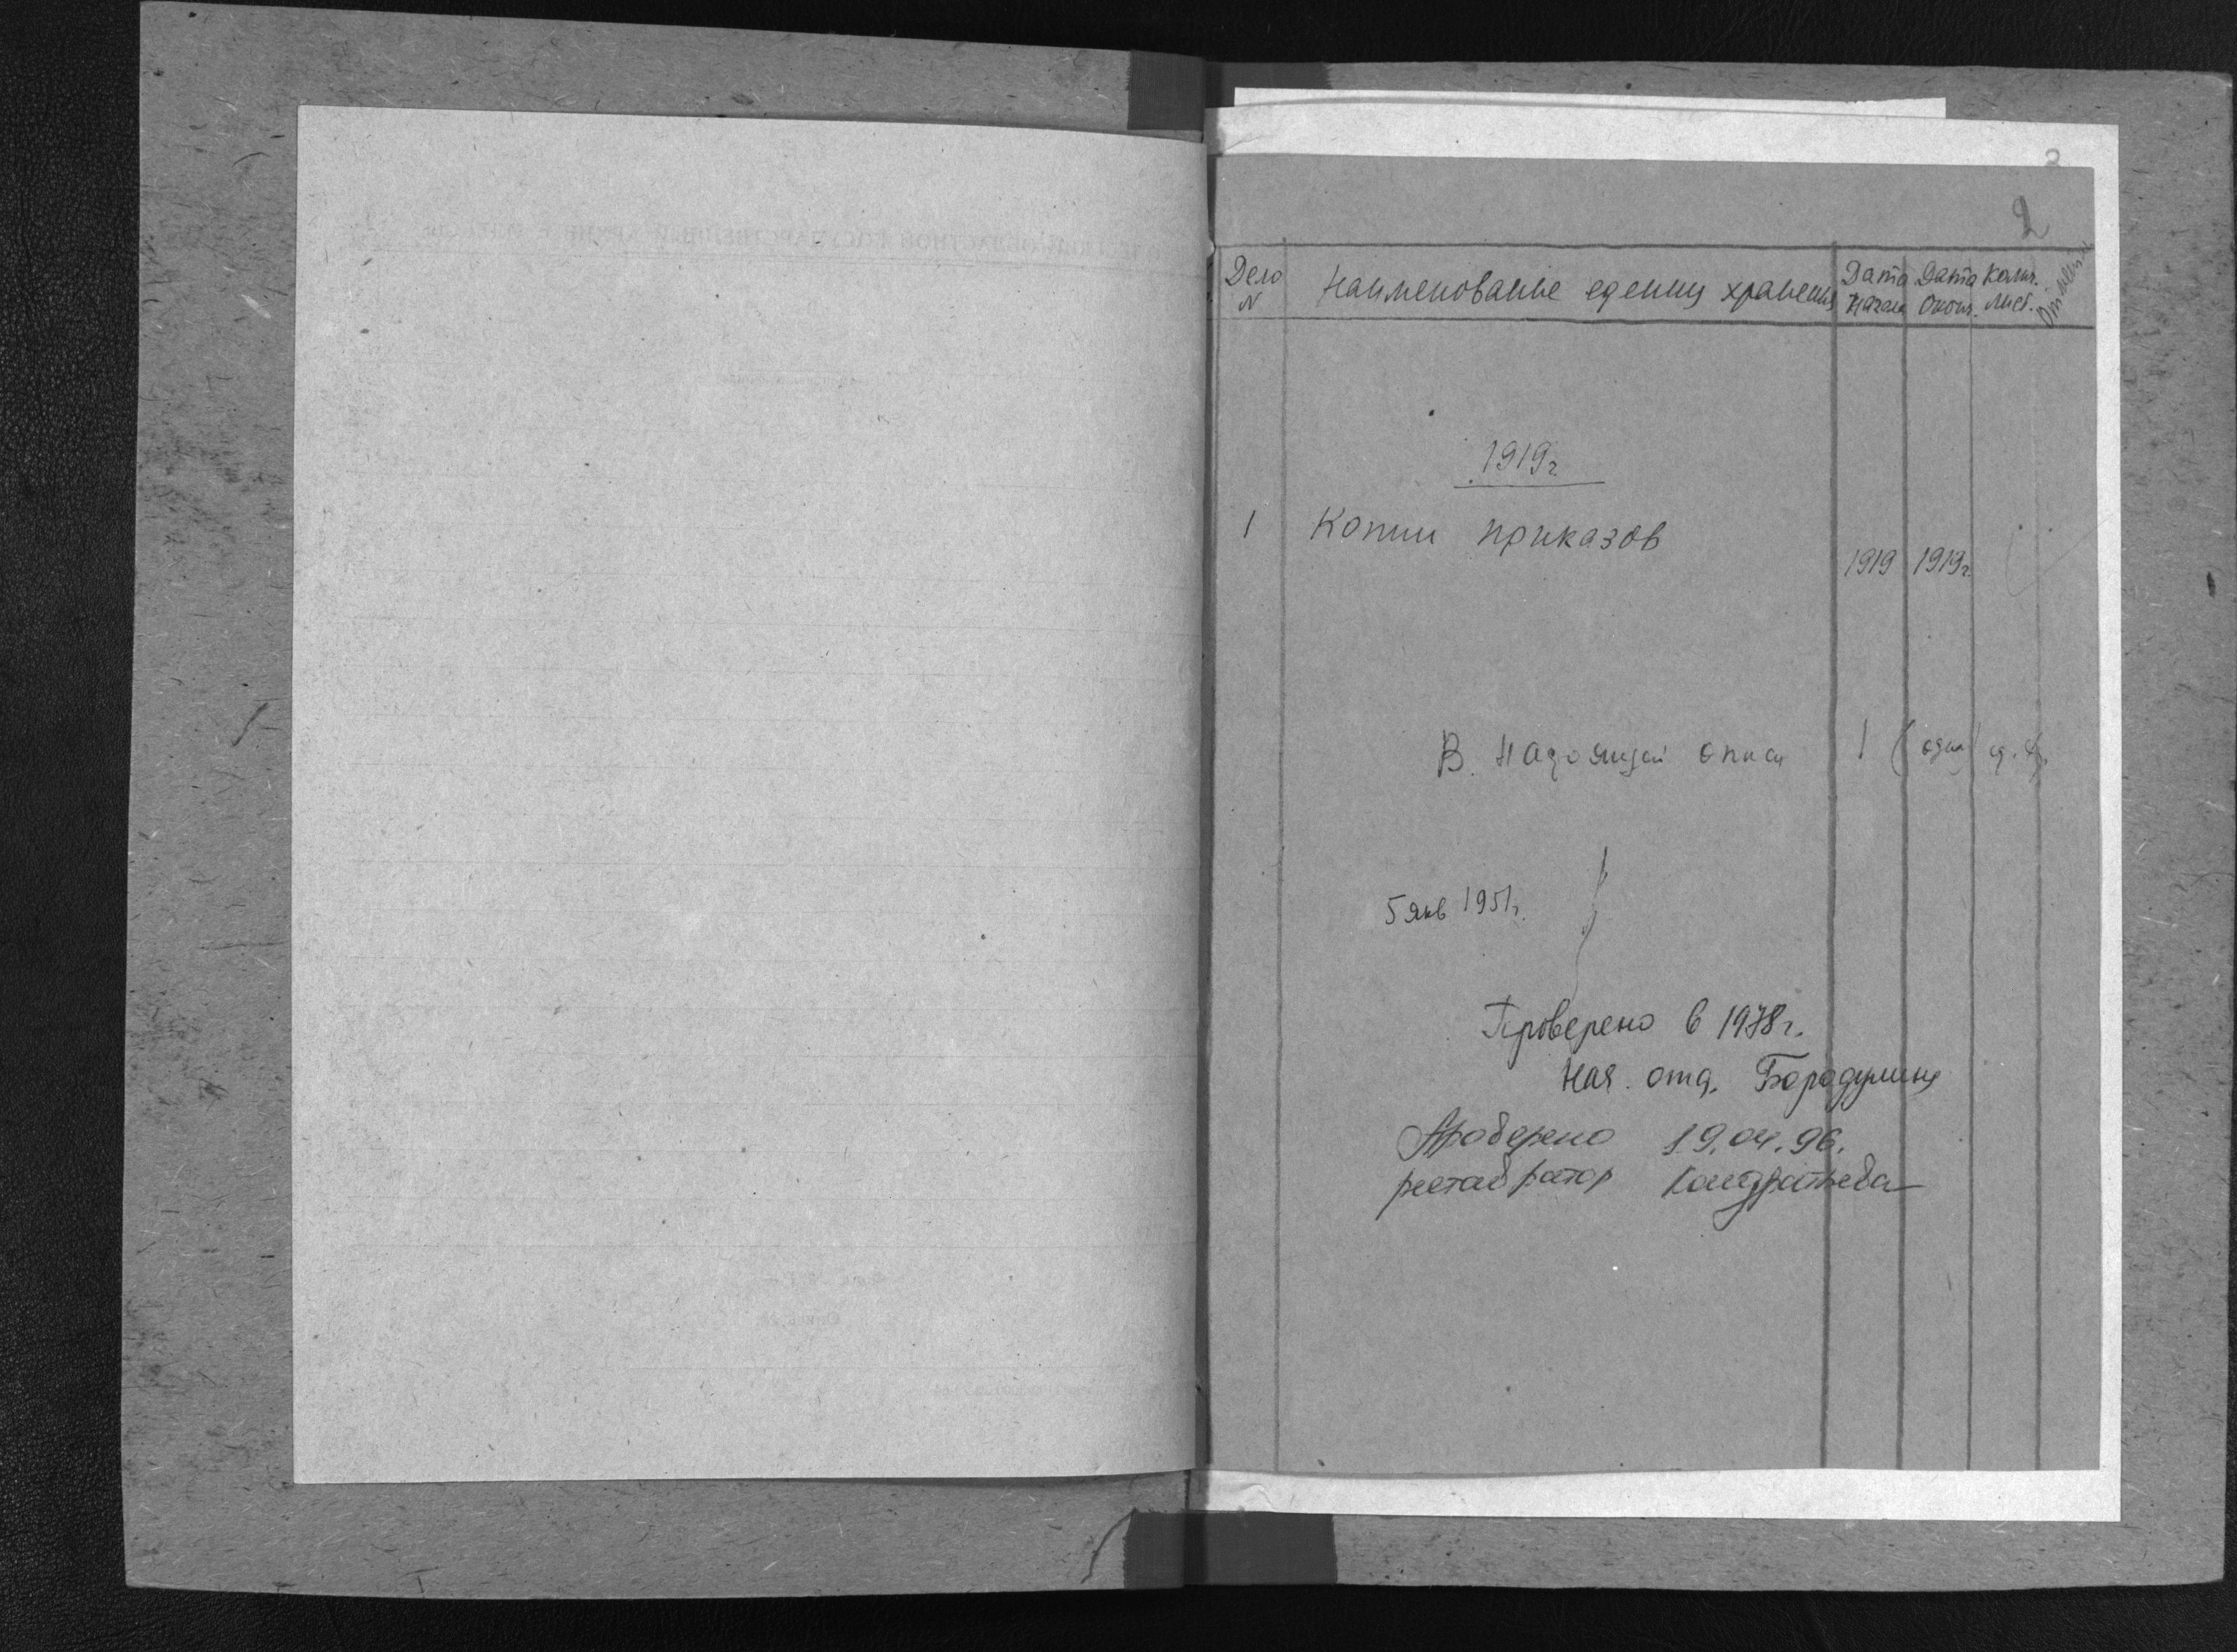 2
Дело N | Наименование едениц хранения | Дата Начала | Дата Оконч. | Колич. лист. | Отметки
1919г
1 Копии приказов 1919 1919г.
В настоящей описи 1 (один) ед. хр.
5 янв 1951г.
Проверено в 1978г.
Нач. отд. Бородулина
Проверено 19.04.96.
реставратор Кондратьева